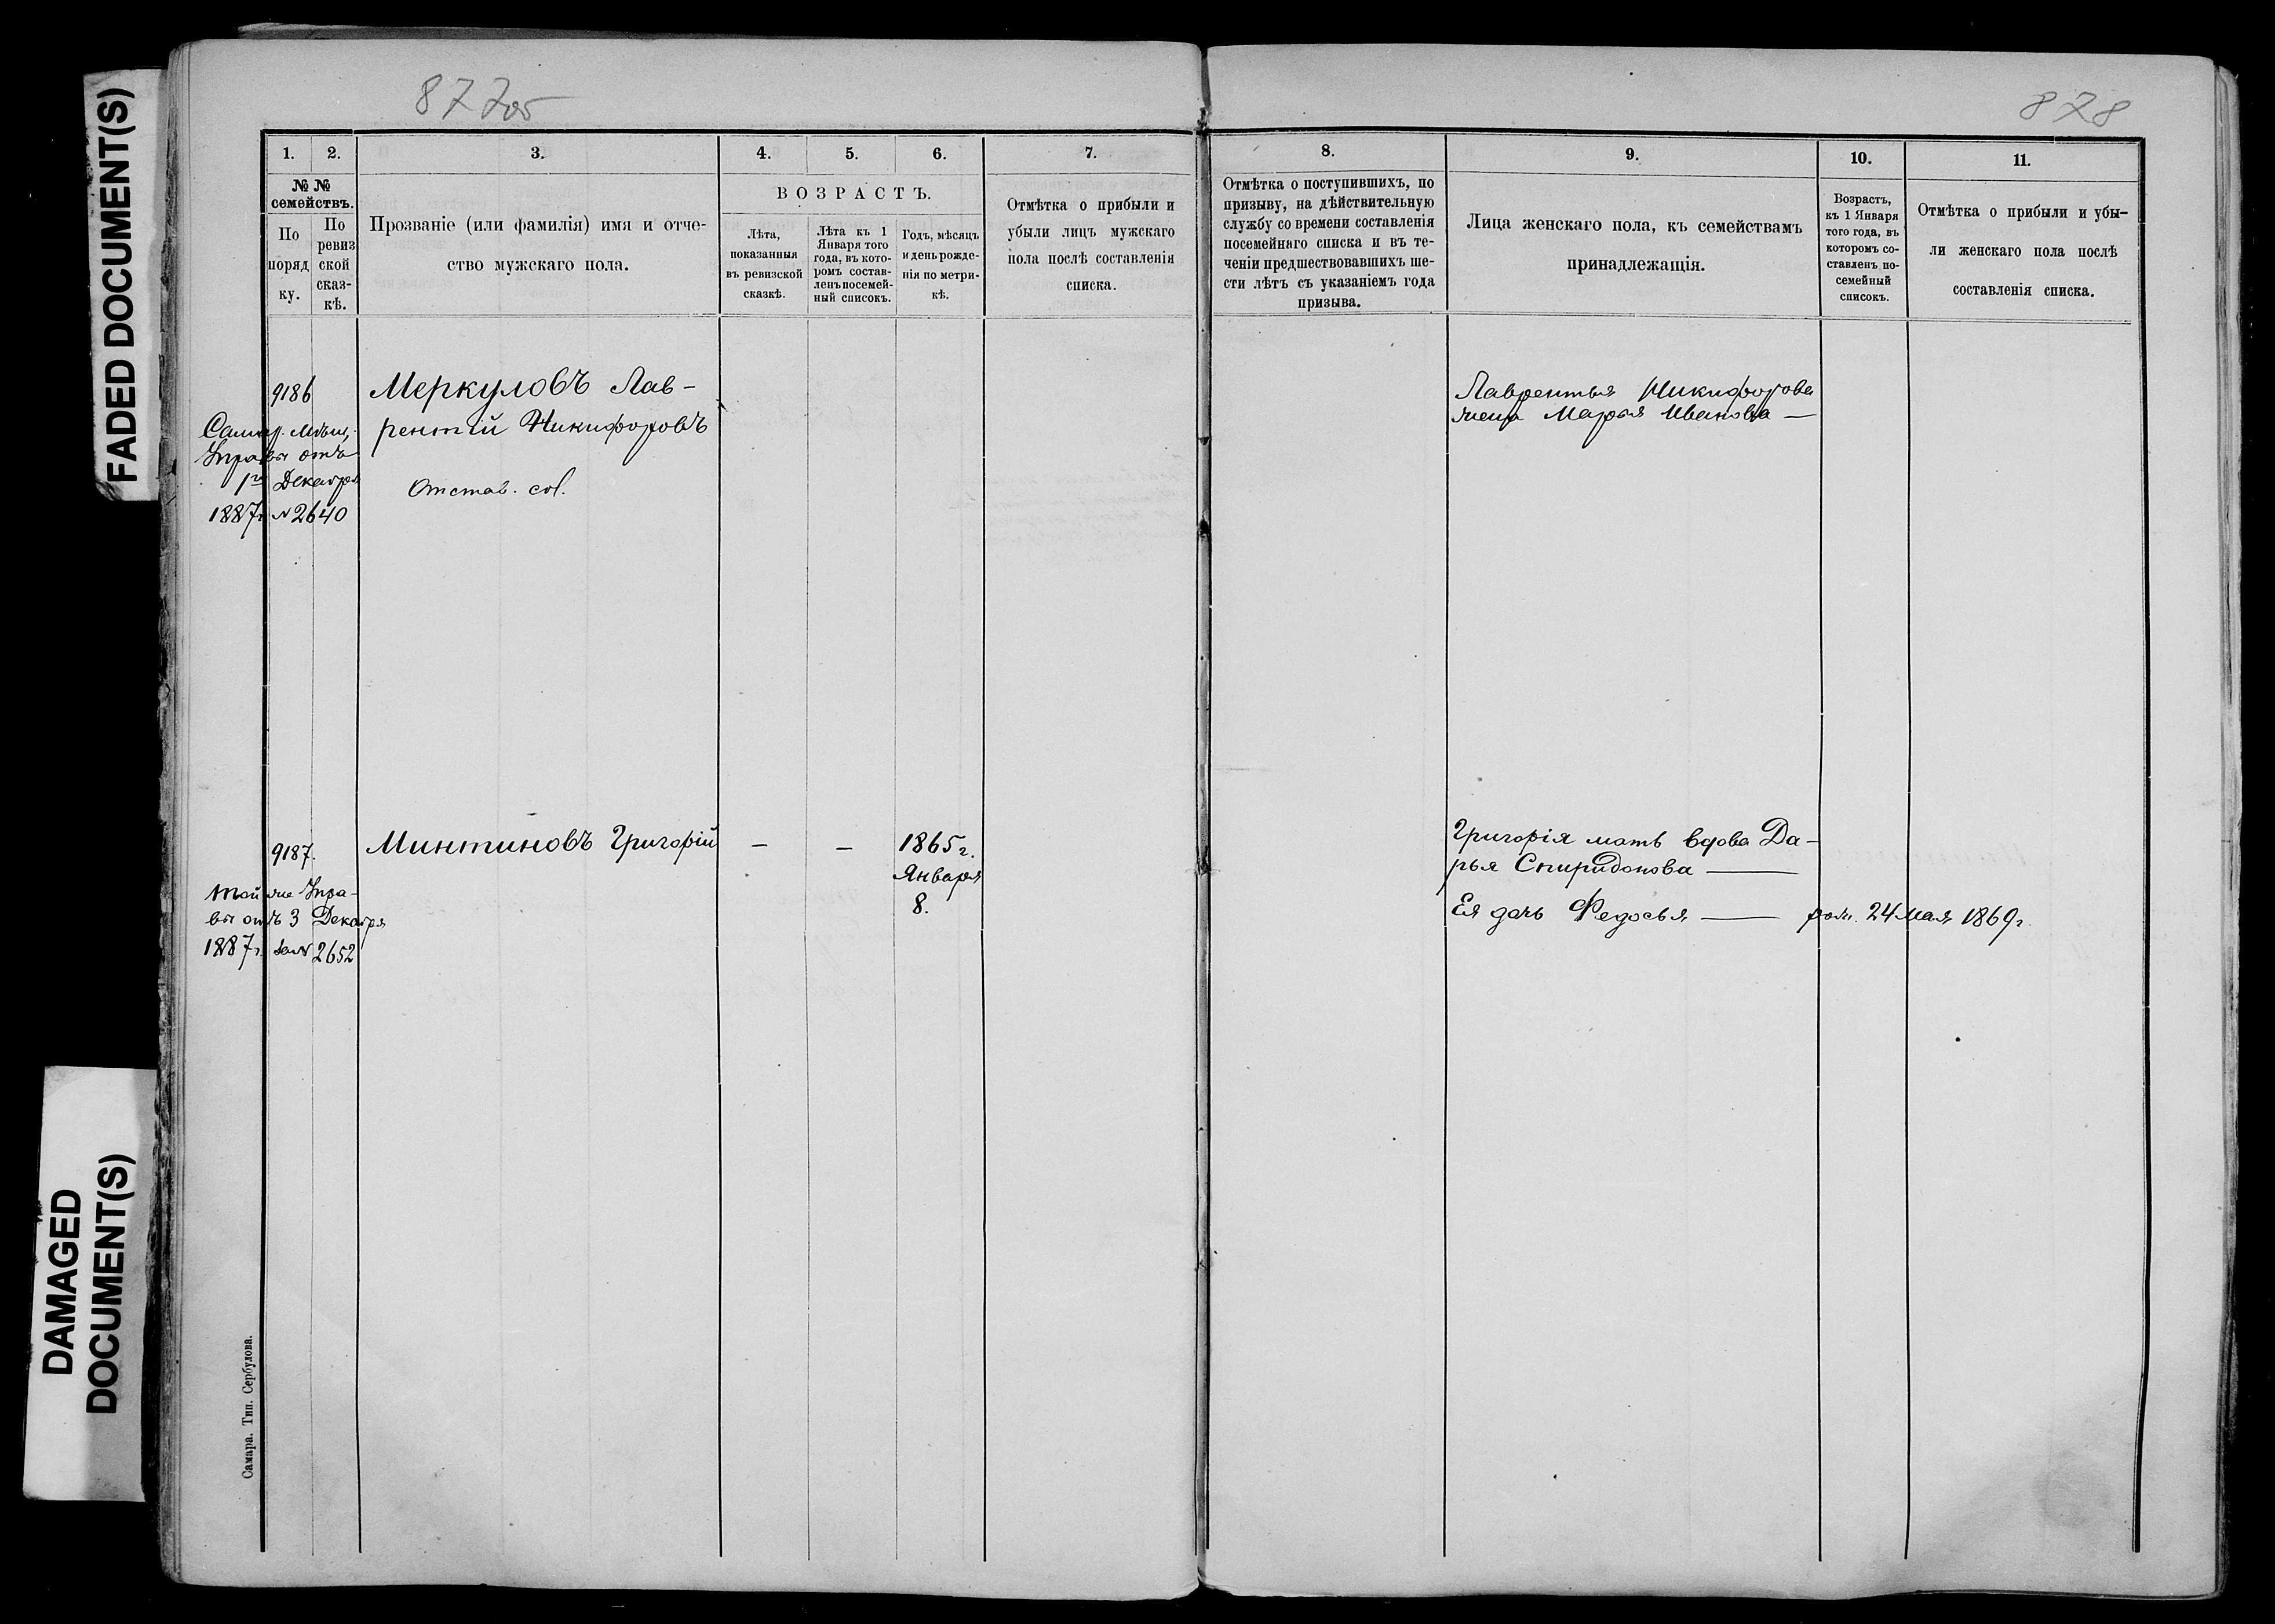 FADED DOCUMENT(S)
DAMAGED
DOCUMENT(S)
877об
878
1.
2.
3.
4.
5.
6.
7.
8.
9.
10.
11.
№ №
семействъ.
По
поряд
ку.
По
ревиз
ской
сказ-
кѣ.
Прозваніе (или фамилія) имя и отче-
ство мужскаго пола.
ВОЗРАСТЪ.
Лѣта,
показанныя
въ ревизской
сказкѣ.
Лѣта къ 1
Января того
года, въ кото-
ромъ состав-
ленъ посемей-
ный списокъ.
Годъ, мѣсяцъ
и день рожде-
нія по метри-
кѣ.
Отмѣтка о прибыли и
убыли лицъ мужскаго
пола послѣ составленія
списка.
Отмѣтка о поступившихъ, по
призыву, на дѣйствительную
службу со времени составленія
посемейнаго списка и въ те-
ченіи предшествовавшихъ ше-
сти лѣтъ съ указаніемъ года
призыва.
Лица женскаго пола, къ семействамъ
принадлежащія.
Возрастъ,
къ 1 Января
того года, въ
которомъ со-
ставленъ по-
семейный
списокъ.
Отмѣтка о прибыли и убы-
ли женскаго пола послѣ
составленія списка.
9186
Самар. Мѣщ.
Управы отъ
1го Декабря
1887г. № 2640
Меркуловъ Лав-
рентій Никифоровъ
Отстав. сол.
Лаврентья Никифорова
жена Марья Иванова —
9187.
той же Упра-
вы отъ 3 Декабря
1887г. за № 2652
Минтиновъ Григорій — — 1865г.
Января
8.
Григорія мать вдова Да-
рья Спиридонова —
Ея дочь Федосья — рож. 24 Мая 1869г.
Самара. Тип. Сербулова.